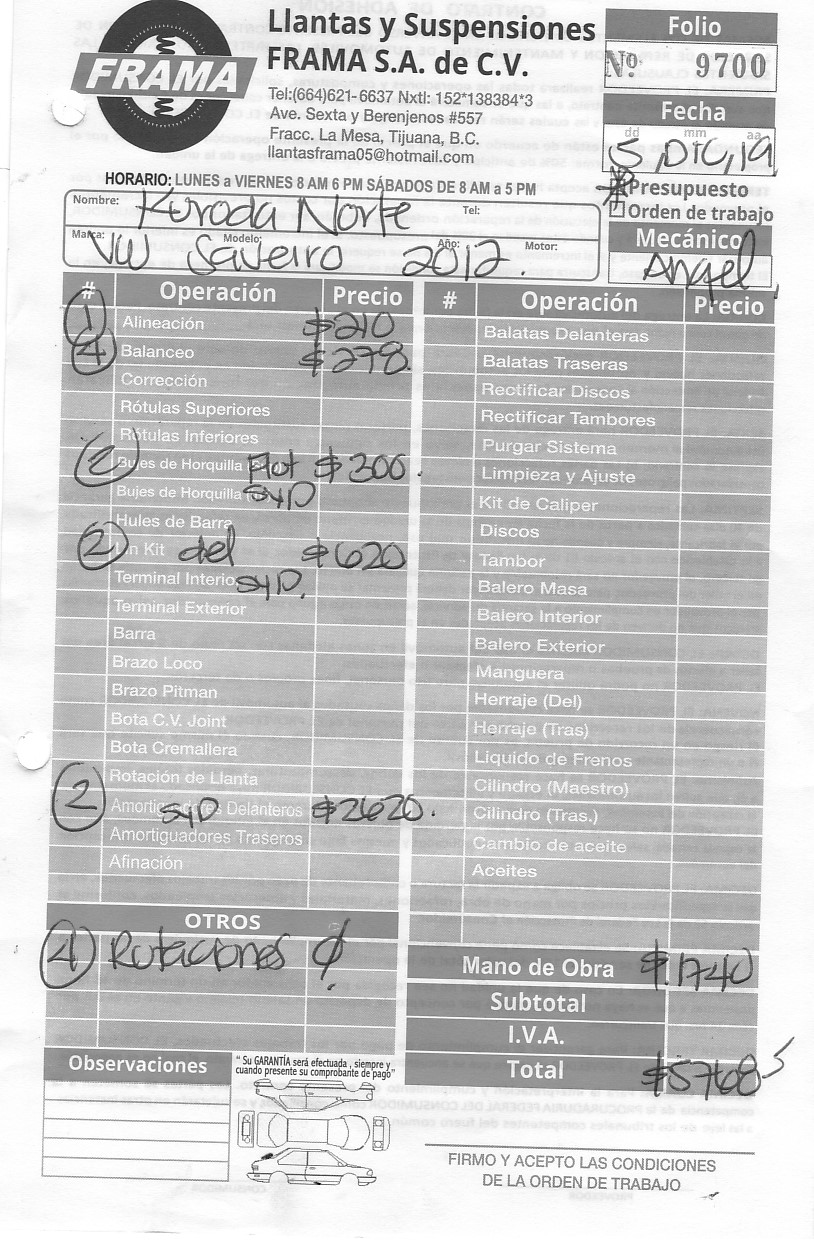 FRAMA
Llantas y Suspensiones
FRAMA S.A. de C.V.
Tel:(664)621-6637 Nxtl: 152*138384*3
Ave. Sexta y Berenjenos #557
Fracc. La Mesa, Tijuana, B.C.
llantasframa05@hotmail.com
Folio
Nº. 9700
Fecha
dd mm aa
5, DIC, 19
HORARIO: LUNES a VIERNES 8 AM 6 PM SÁBADOS DE 8 AM a 5 PM
Presupuesto
Orden de trabajo
Nombre: Kuroda Norte Tel:
Marca: VW Modelo: Saveiro Año: 2012. Motor:
Mecánico
Angel
# Operación Precio
1 Alineación $210
4 Balanceo $278.
Corrección
Rótulas Superiores
Rótulas Inferiores
2 Bujes de Horquilla $300.
Bujes de Horquilla SYD
Hules de Barra
2 Lin Kit del $620
Terminal Interio SYD.
Terminal Exterior
Barra
Brazo Loco
Brazo Pitman
Bota C.V. Joint
Bota Cremallera
Rotación de Llanta
2 Amortiguadores Delanteros SYD $2620.
Amortiguadores Traseros
Afinación
OTROS
4 Rotaciones
# Operación Precio
Balatas Delanteras
Balatas Traseras
Rectificar Discos
Rectificar Tambores
Purgar Sistema
Limpieza y Ajuste
Kit de Caliper
Discos
Tambor
Balero Masa
Balero Interior
Balero Exterior
Manguera
Herraje (Del)
Herraje (Tras)
Liquido de Frenos
Cilindro (Maestro)
Cilindro (Tras.)
Cambio de aceite
Aceites
Mano de Obra $.1740
Subtotal
I.V.A.
Total $5768
Observaciones
" Su GARANTÍA será efectuada , siempre y
cuando presente su comprobante de pago"
FIRMO Y ACEPTO LAS CONDICIONES
DE LA ORDEN DE TRABAJO